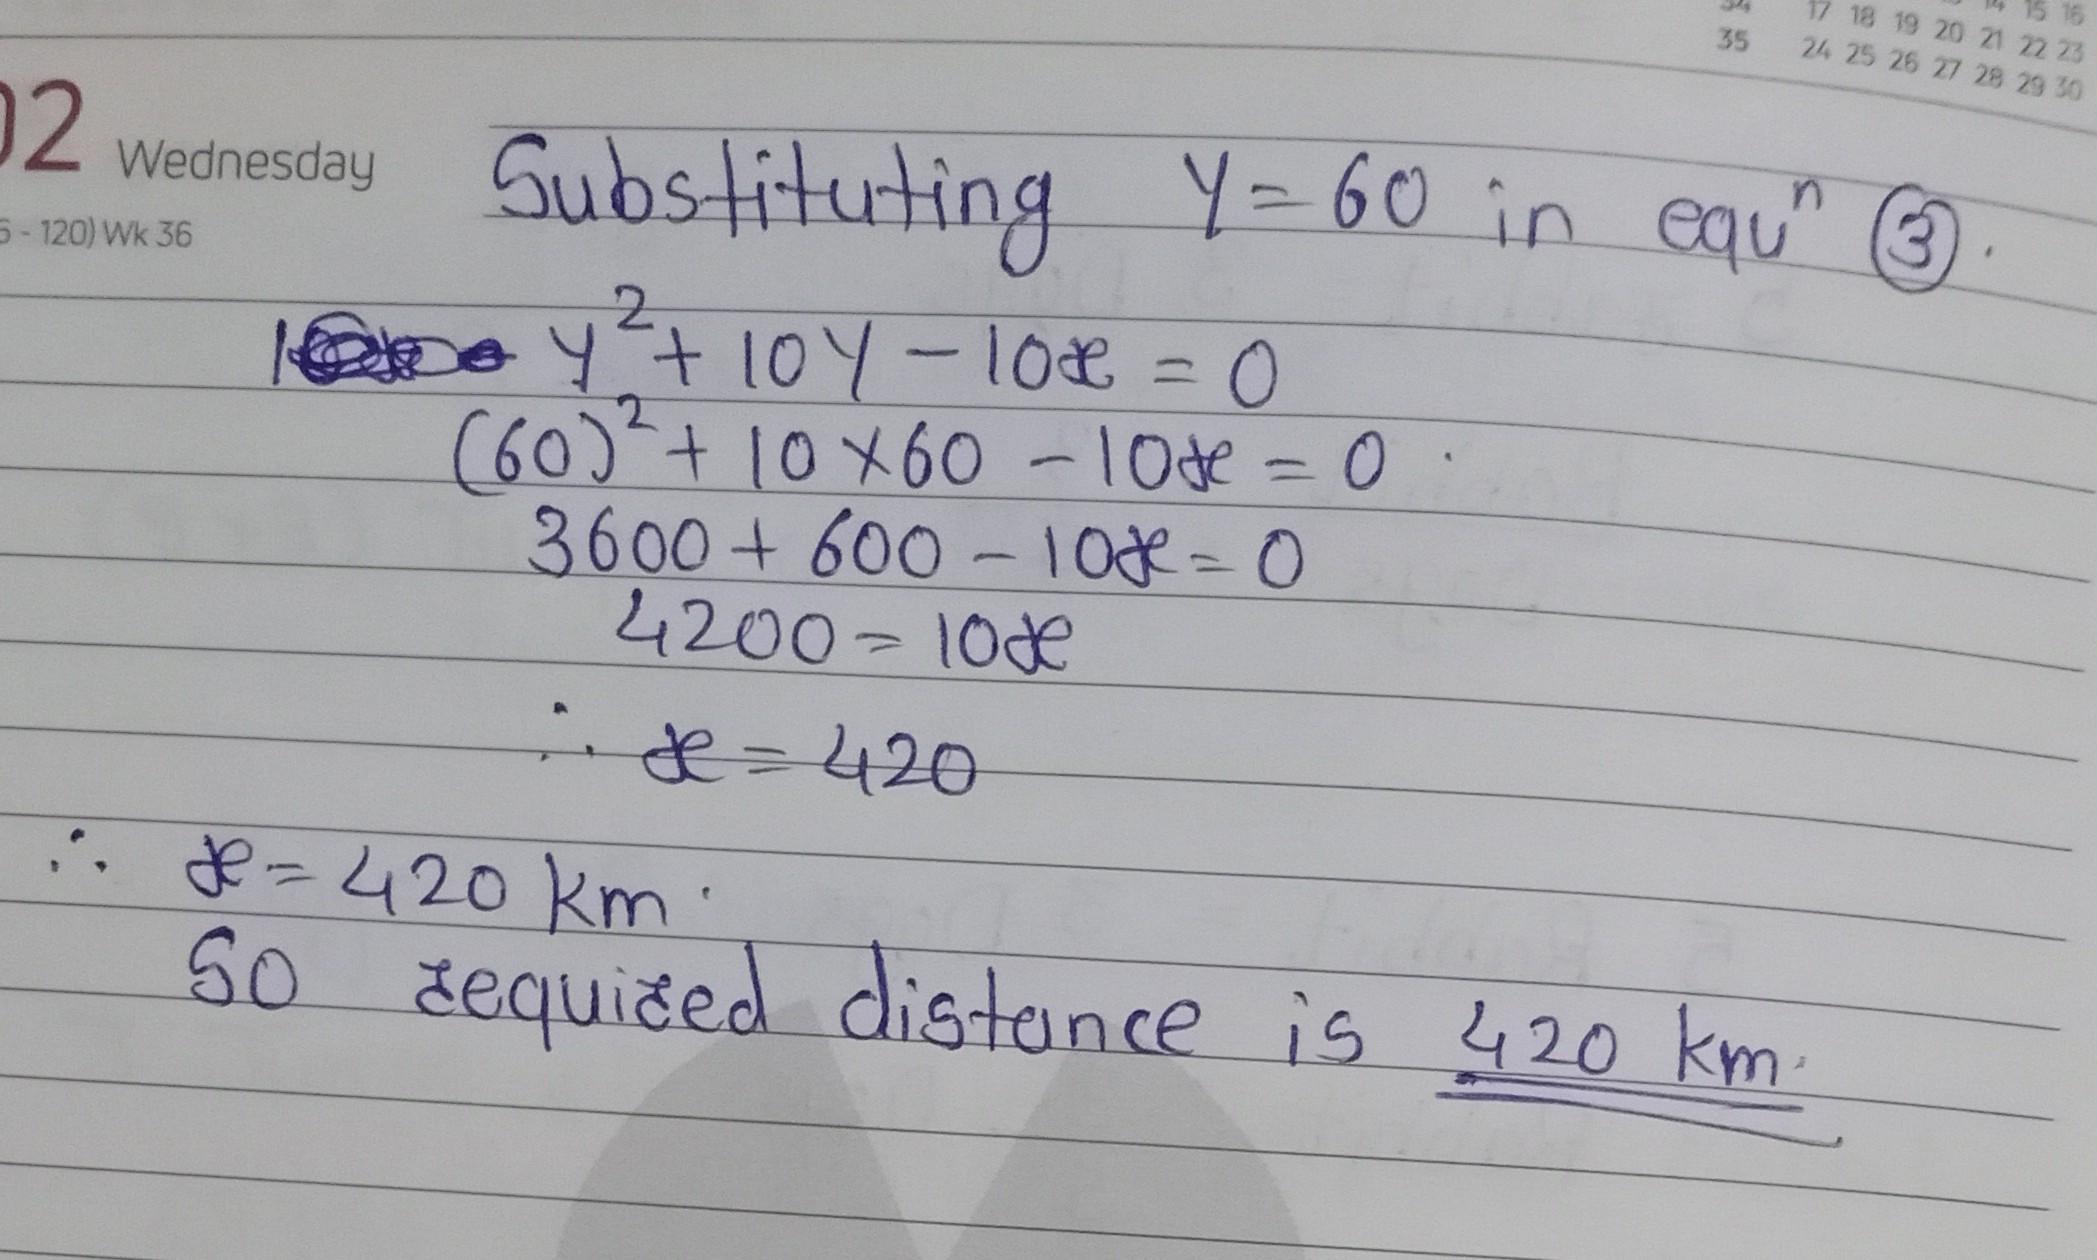 14 15 16
34 17 18 19 20 21 22 23
35 24 25 26 27 28 29 30
02 Wednesday
- 120) Wk 36
Substituting Y = 60 in equⁿ ③.
y² + 10y - 10x = 0
(60)² + 10 × 60 - 10x = 0
3600 + 600 - 10x = 0
4200 = 10x
∴ x = 420
∴ x = 420 km.
So required distance is 420 km.